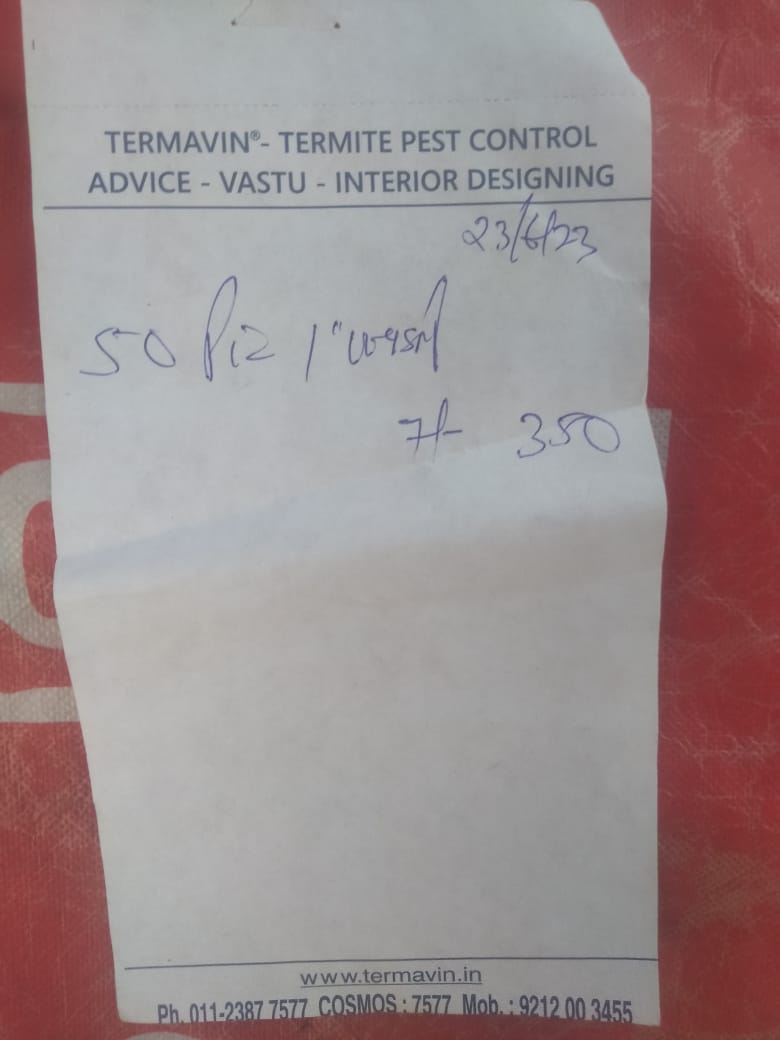 TERMAVIN®- TERMITE PEST CONTROL
ADVICE - VASTU - INTERIOR DESIGNING
23/6/23
50 Piz 1"
7/- 350
www.termavin.in
Ph. 011-2387 7577 COSMOS : 7577 Mob. : 9212 00 3455